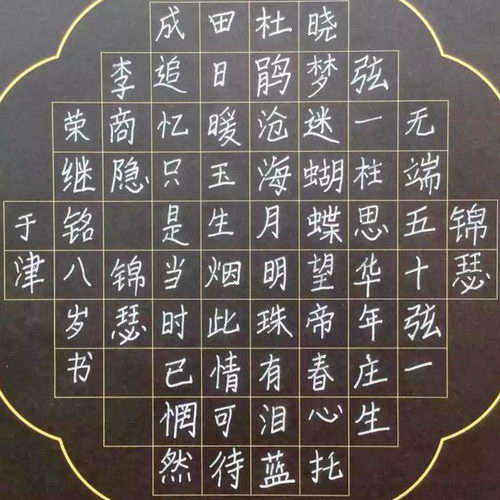 锦瑟
无端五十弦一
弦一柱思华年庄生
晓梦迷蝴蝶望帝春心托
杜鹃沧海月明珠有泪蓝
田日暖玉生烟此情可待
成追忆只是当时已惘然
李商隐 锦瑟
荣继铭八岁书
于津